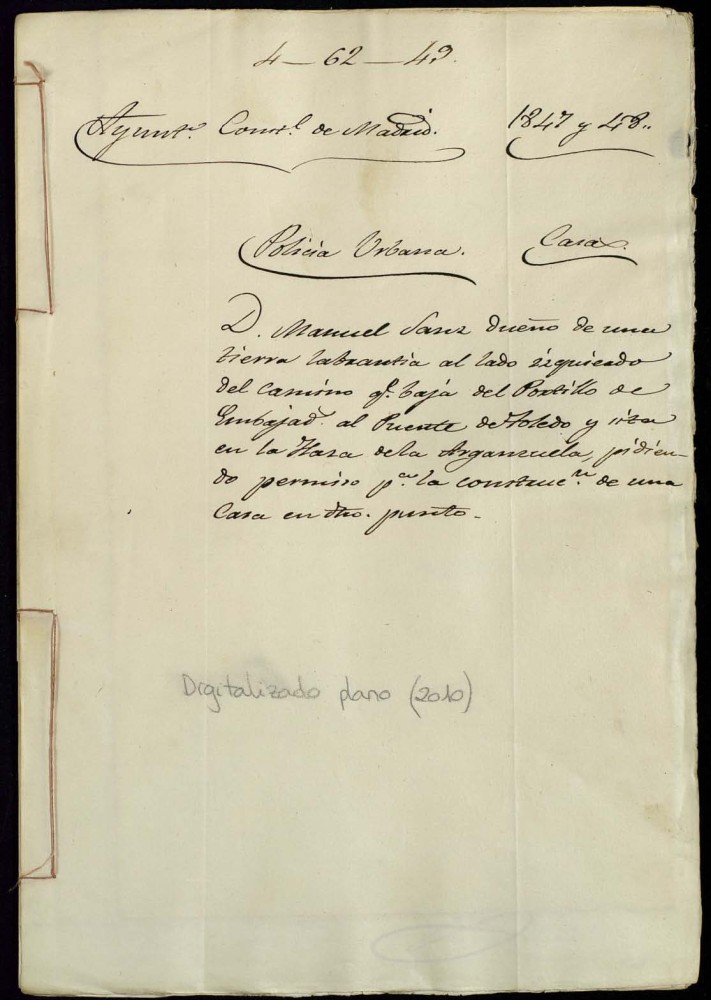 4 — 62 — 49.
Ayunto. Constl. de Madrid. 1847 y 48..
Policia Urbana. Casa
D. Manuel Sanz dueño de una
tierra labrantia al lado izquierdo
del camino qe. baja del Portillo de
Embajads. al Puente de Toledo y sita
en la Haza de la Arganzuela, pidien-
do permiso pa. la construcn. de una
Casa en dho. punto.
Digitalizado plano (2010)